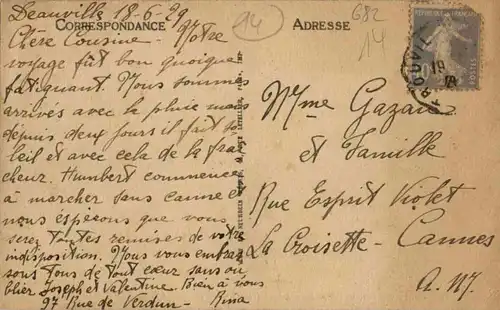 Deauville 18-6-29
CORRESPONDANCE
Chère Cousine - Notre
voyage fût bon quoique
fatiguant. Nous sommes
arrivés avec la pluie mais
depuis deux jours il fait so-
leil et avec cela de la fraî-
cheur. Humbert commence
à marcher sans canne et
nous espérons que vous
serez toutes remises de votre
indisposition. Nous vous embras
sons tous de tout cœur sans ou
blier Joseph et Valentine. Bien à vous
97 Rue de Verdun - Rina
94
ADRESSE
682
14
RÉPUBLIQUE FRANÇAISE
POSTES
TROUVIL
19
Mme Gazan
et Famille
Rue Esprit Violet
La Croisette - Cannes
A. M.